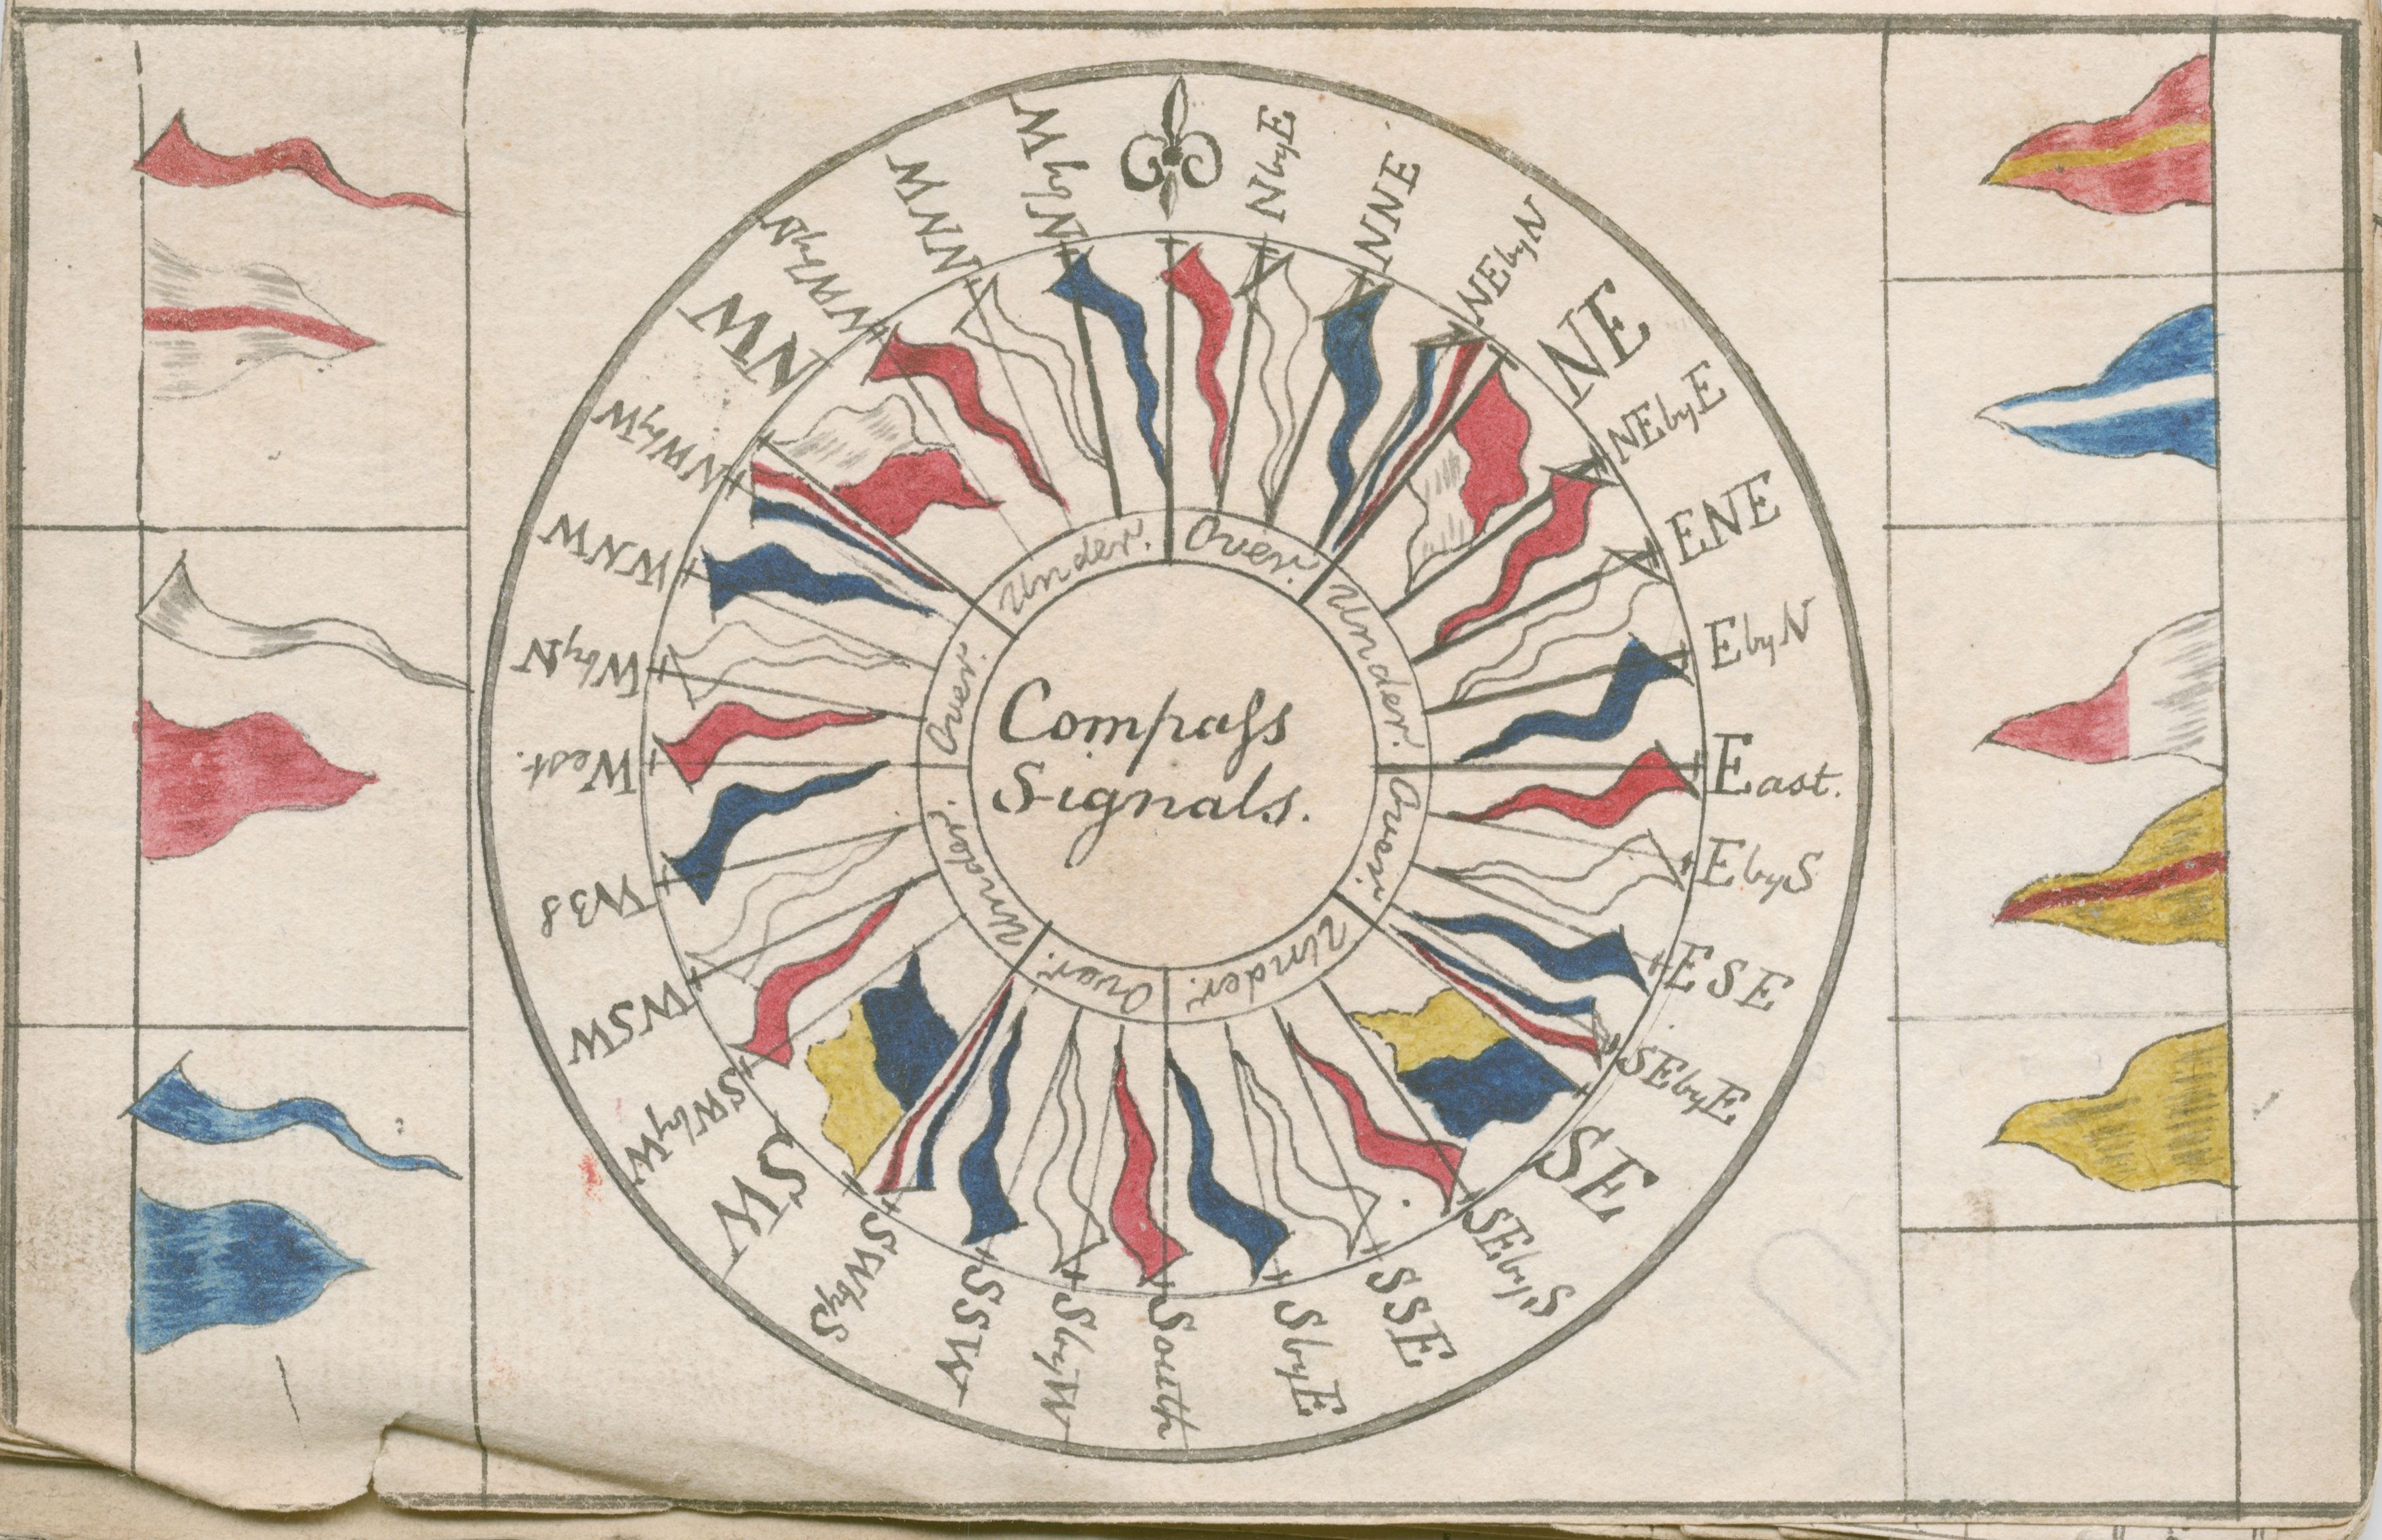 Compass
Signals.
Over.
Under.
Over.
Under.
Over.
Under.
Over.
Under.
NbyE
NNE
NEbyN
NE
NEbyE
ENE
EbyN
East.
EbyS
ESE
SEbyE
SE
SEbyS
SSE
SbyE
South
SbyW
SSW
SWbyS
SW
SWbyW
WSW
West.
WbyN
WNW
NWbyW
NW
NWbyN
NNW
NbyW